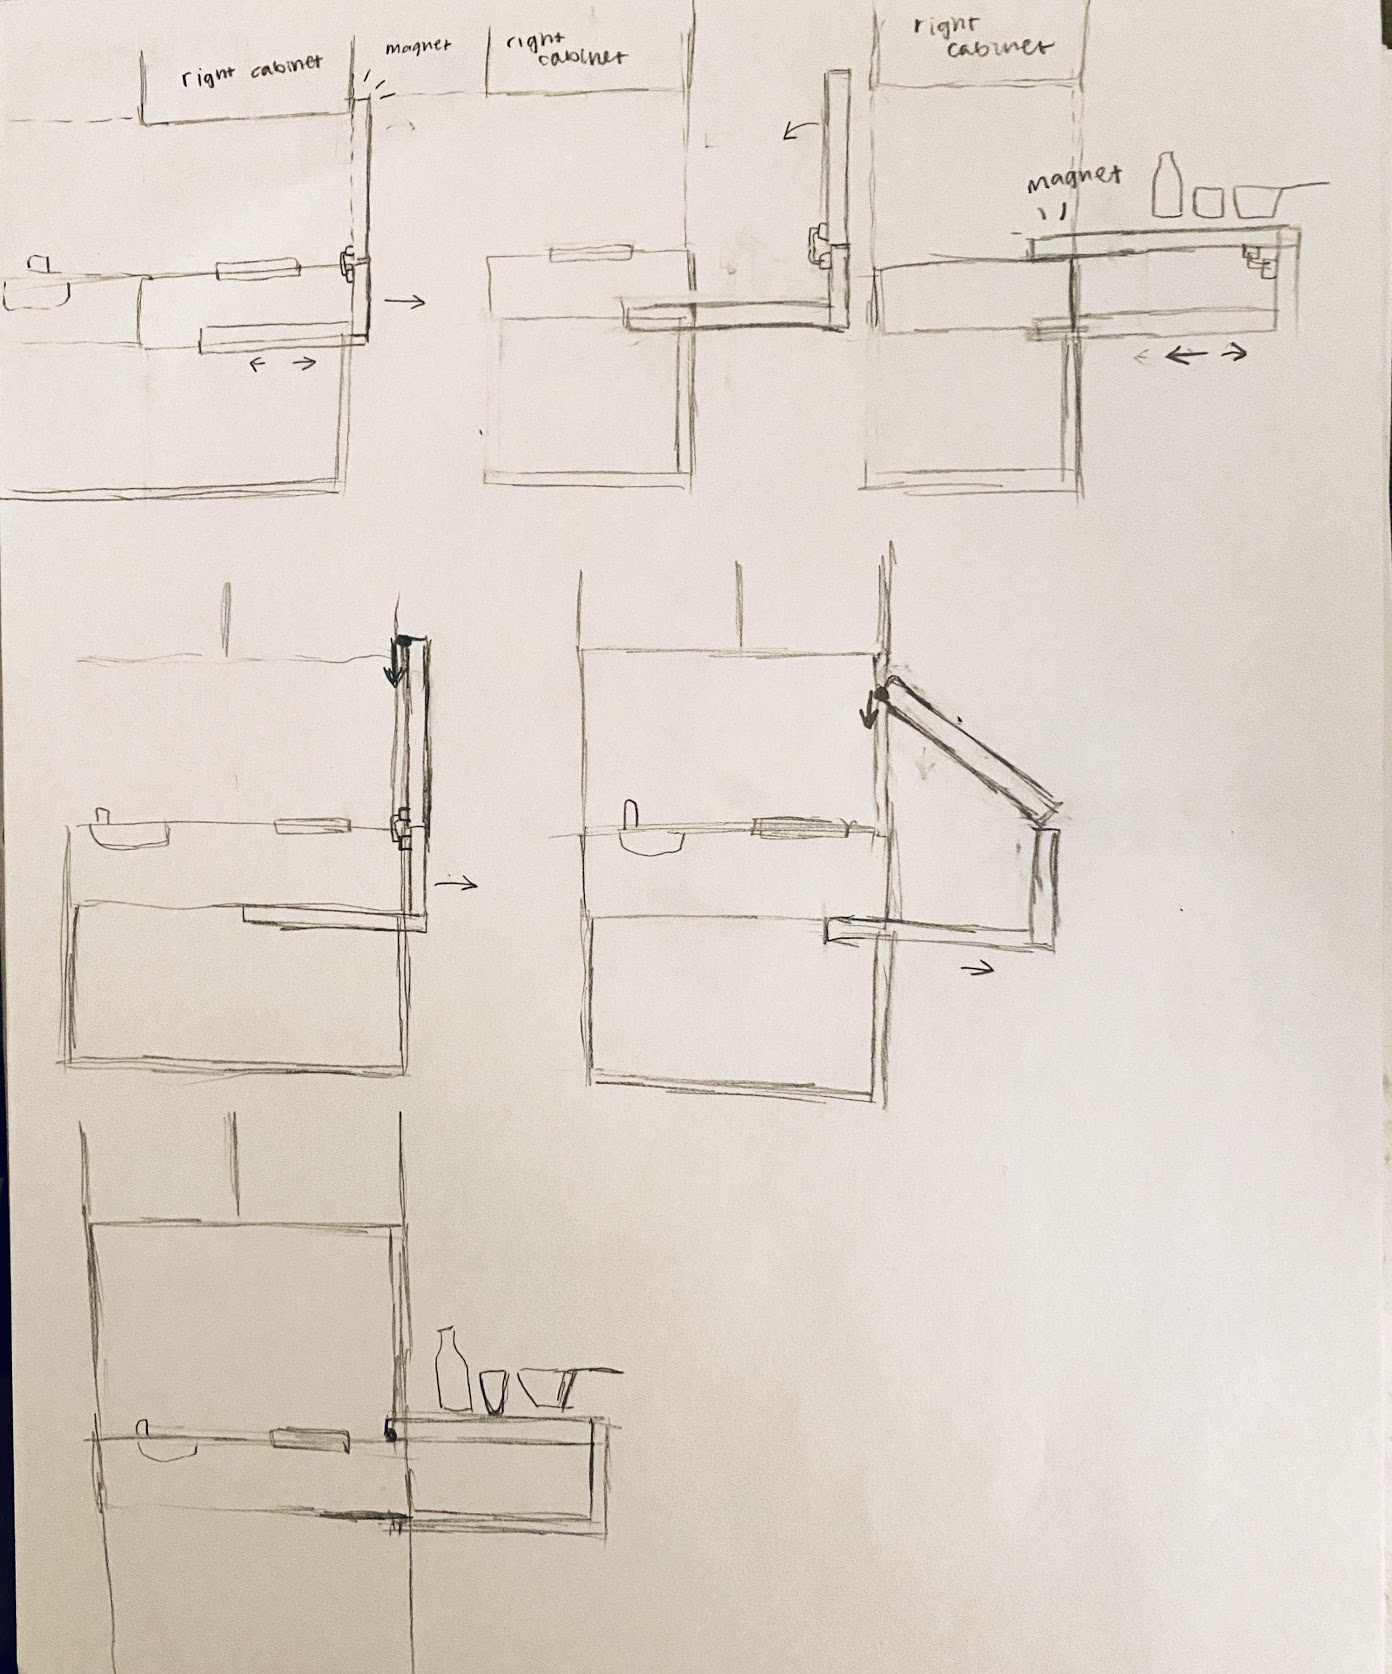 right cabinet
magnet
right
cabinet
right
cabinet
magnet